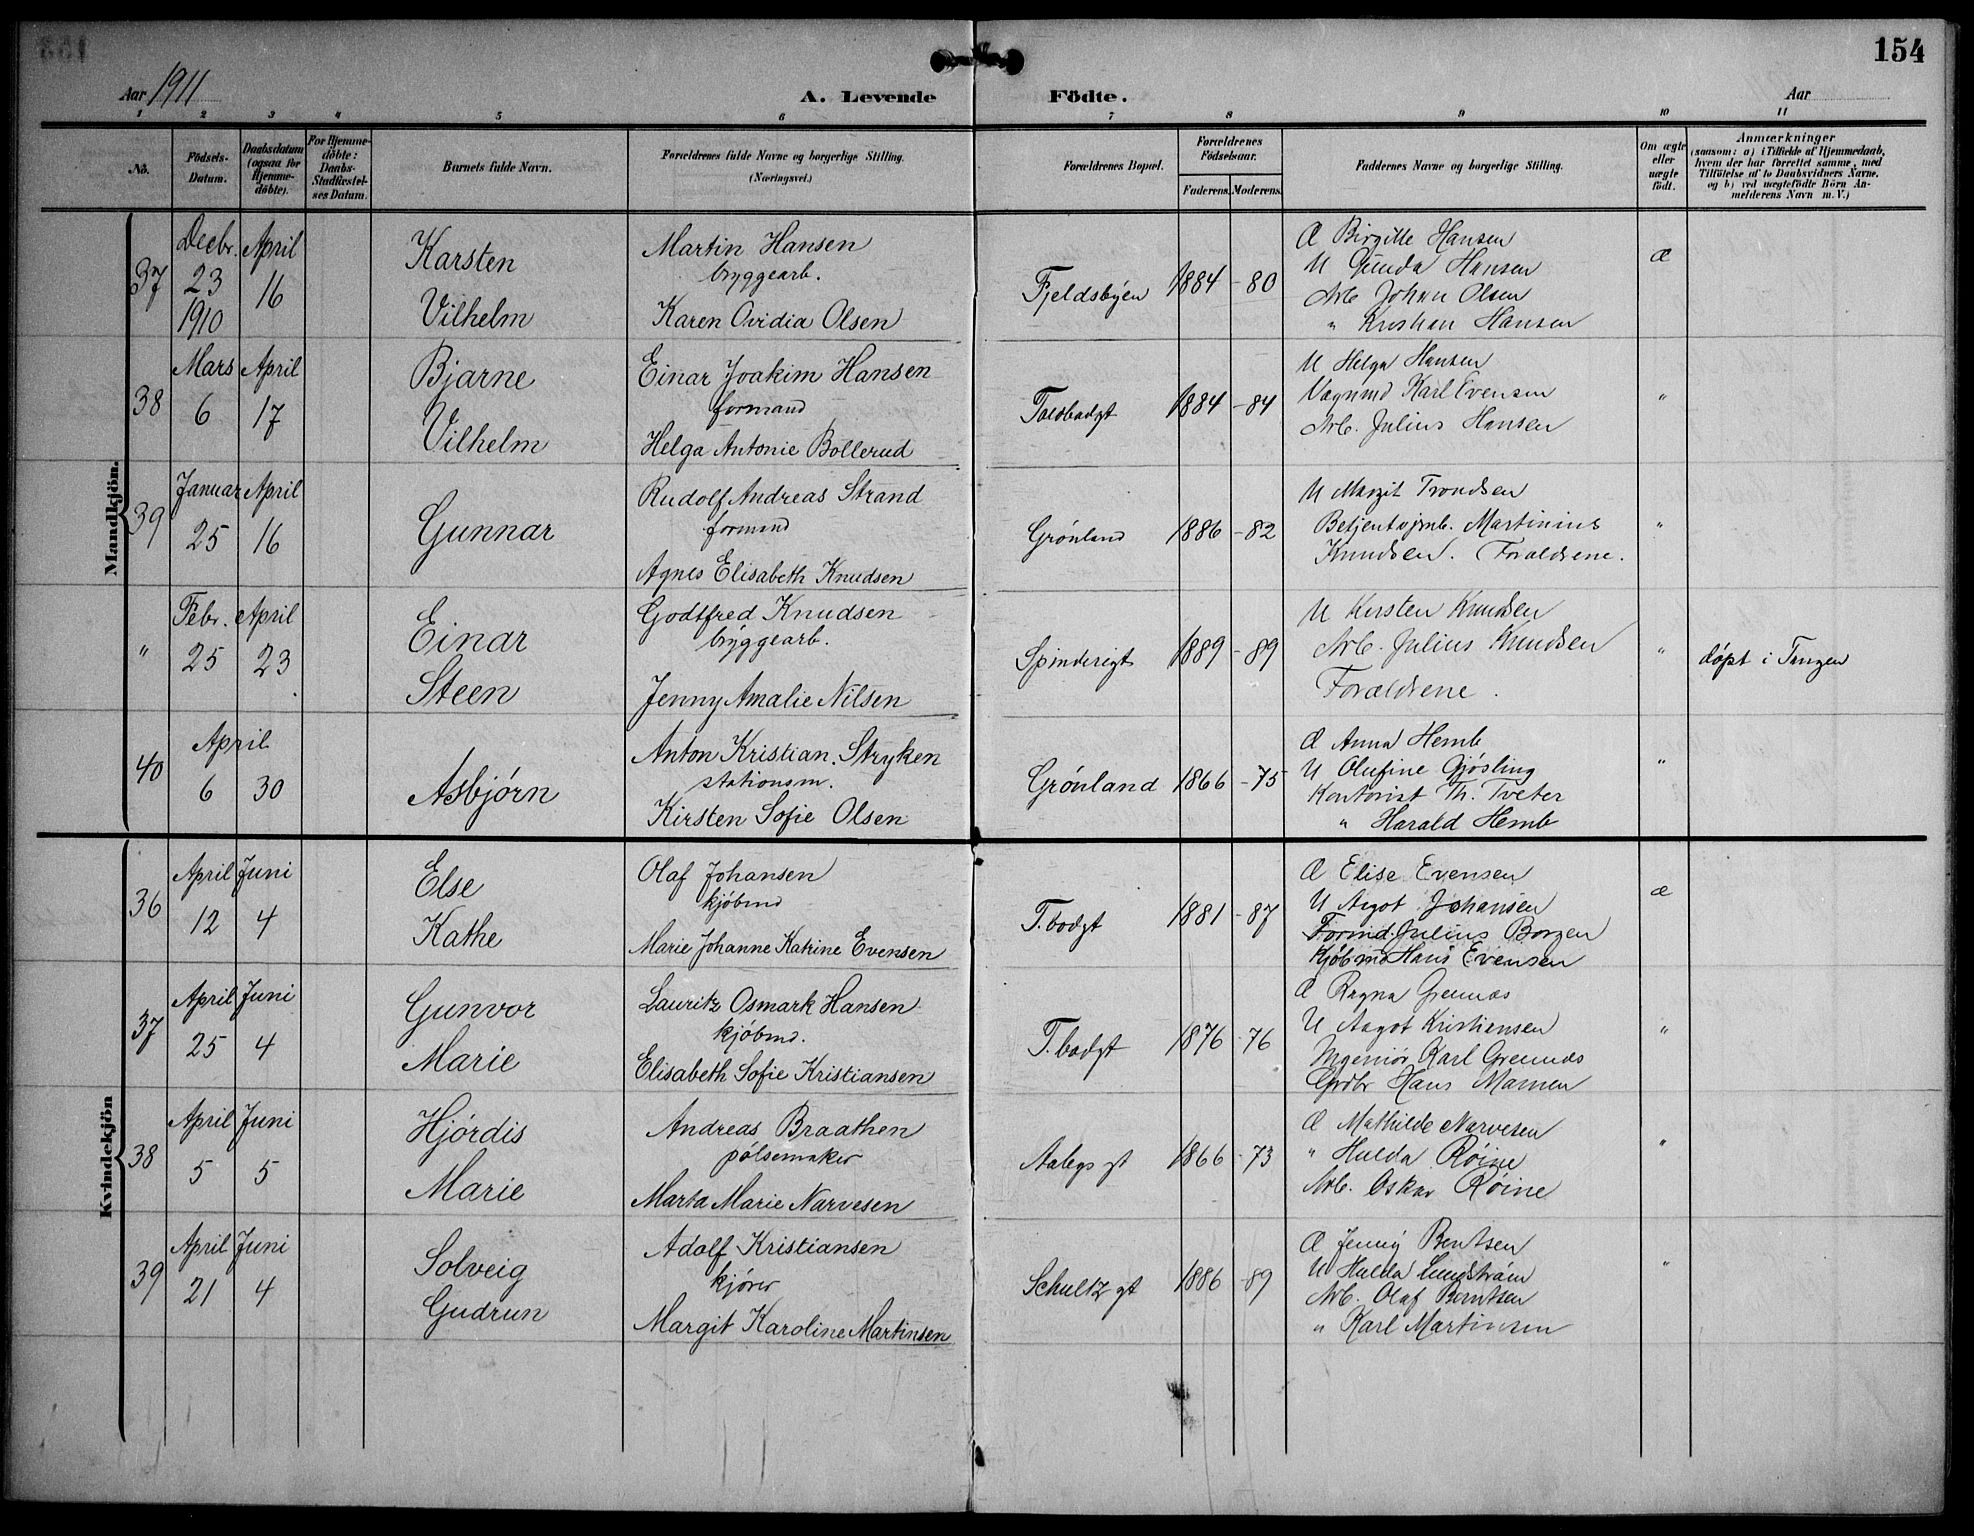 154
Aar 1911
A. Levende Födte.
Aar
1 2 3 4 5 6 7 8 9 10 11
No.
Födsels-Datum.
Daabsdatum (ogsaa for Hjemme-döbte).
For Hjemme-döbte: Daabs-Stadfæstel-ses Datum.
Barnets fulde Navn.
Forældrenes fulde Navne og borgerlige Stilling. (Næringsvei.)
Forældrenes Bopæl.
Forældrenes Födselsaar.
Faderens. Moderens.
Faddernes Navne og borgerlige Stilling.
Om ægte eller uægte födt.
Anmærkninger
(saasom: a) i Tilfælde af Hjemmedaab,
hvem der har forrettet samme, med
Tilföielse af to Daabsvidners Navne,
og b) ved uægtefödte Börn An-
melderens Navn m. V.)
Mandkjön.
37
Decbr. 23 1910
April 16
Karsten
Vilhelm
Martin Hansen
bryggearb.
Karen Ovidia Olsen
Fjeldsbyen
1884 - 80
Æ Birgitte Hansen
U Gunda Hansen
Arb. Johan Olsen
" Kristian Hansen
æ
38
Mars 6
April 17
Bjarne
Vilhelm
Einar Joakim Hansen
formand
Helga Antonie Bollerud
Toldbodgt
1884 - 84
U Helga Hansen
Vognmd Karl Evensen
Arb. Julius Hansen
"
39
Januar 25
April 16
Gunnar
Rudolf Andreas Strand
formand
Agnes Elisabeth Knudsen
Grønland
1886 - 82
U Margit Trondsen
Martinius
Knudsen. Forældrene.
"
"
Febr. 25
April 23
Einar
Steen
Godtfred Knudsen
bryggearb.
Jenny Amalie Nilsen
Spinderigt
1889 - 89
U Kirsten Knudsen
Arb. Julius Knudsen
Forældrene.
"
døpt i Tangen
40
April
6 30
Asbjørn
Anton Kristian Stryken
stationsm.
Kirsten Sofie Olsen
Grønland
1866 - 75
Æ Anna Hemb
U Olufine Gjøsling
Kontorist Th. Tveter
" Harald Hemb
"
Kvindekjön
36
April 12
Juni 4
Else
Kathe
Olaf Johansen
kjøbmd
Marie Johanne Katrine Evensen
T.bodgt
1881 - 87
Æ Elise Evensen
U Aagot Johansen
Formd. Julius Borgen
Kjøbmd Hans Evensen
æ
37
April 25
Juni 4
Gunvor
Marie
Lauritz Osmark Hansen
kjøbmd.
Elisabeth Sofie Kristiansen
T.bodgt
1876 - 76
Æ Ragna Grennæs
U Aagot Kristiansen
Ingeniør Karl Grennæs
Grdbr Hans Mamen
"
38
April 5
Juni 5
Hjørdis
Marie
Andreas Braathen
pølsemaker
Marta Marie Narvesen
Aalegs gt
1866 - 73
Æ Mathilde Narvesen
" Hulda Røine
Arb. Oskar Røine
"
39
April 21
Juni 4
Solveig
Gudrun
Adolf Kristiansen
kjører
Margit Karoline Martinsen
Schultz gt
1886 - 89
Æ Jenny Berntsen
U Hulda Lundstrøm
Arb. Olaf Berntsen
" Karl Martinsen
"